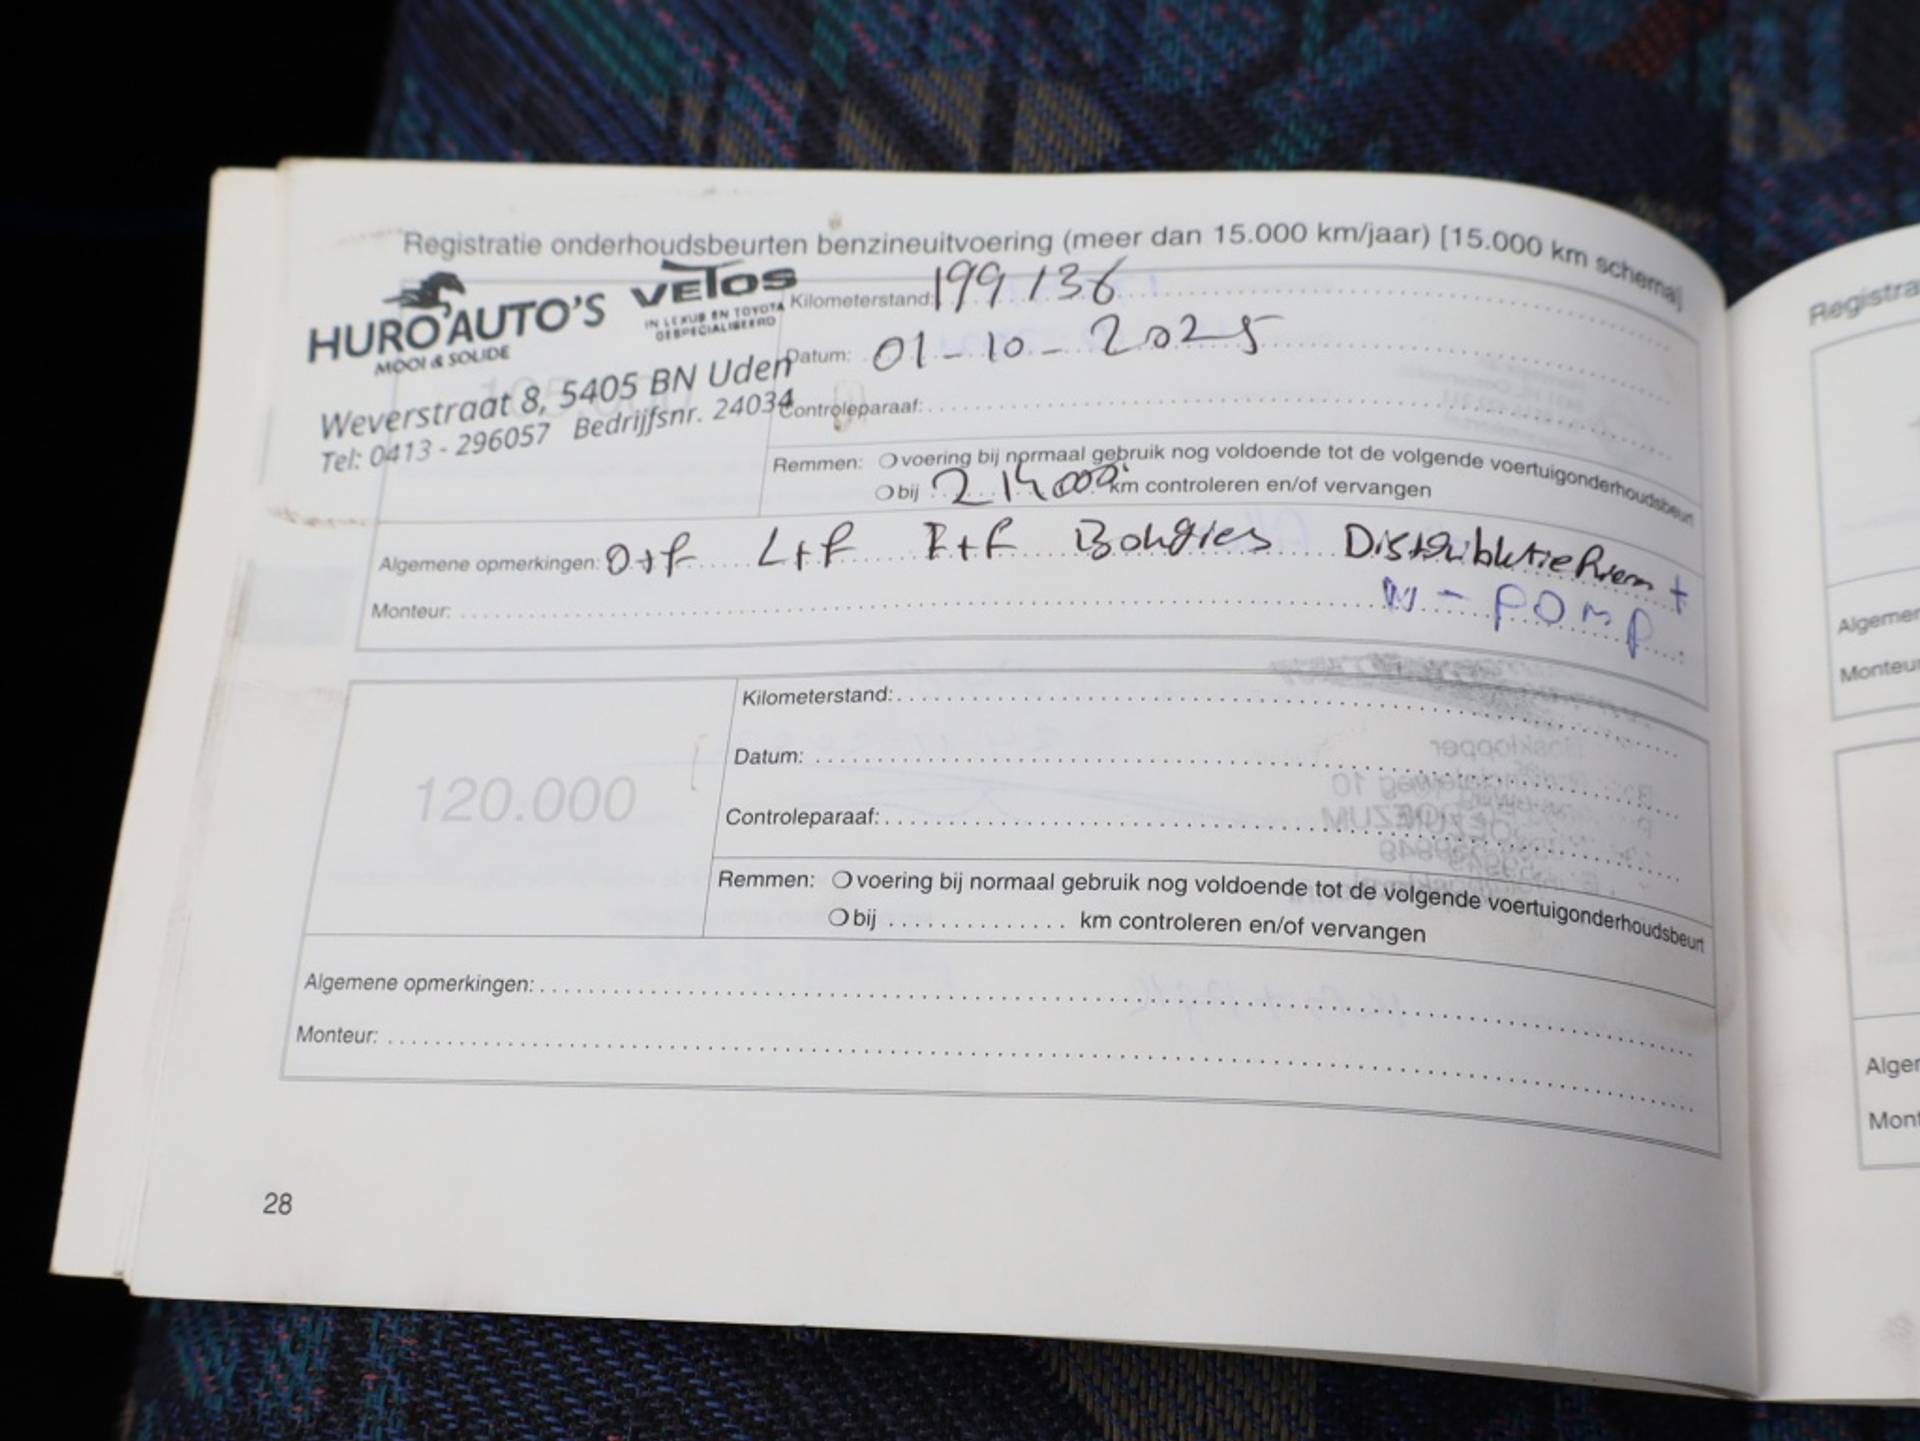 Registratie onderhoudsbeurten benzineuitvoering (meer dan 15.000 km/jaar) [15.000 km schema]
HURO AUTO'S
MOOI & SOLIDE
VETOS
IN LEXUS EN TOYOTA
GESPECIALISEERD
Weverstraat 8, 5405 BN Uden
Tel: 0413 - 296057 Bedrijfsnr. 24034
Kilometerstand: 199136
Datum: 01-10-2025
Controleparaaf:
Remmen: voering bij normaal gebruik nog voldoende tot de volgende voertuigonderhoudsbeurt
bij 214000 km controleren en/of vervangen
Algemene opmerkingen: O+f L+f I+f Bougies Distributieriem +
W-pomp
Monteur:
120.000
Kilometerstand:
Datum:
Controleparaaf:
Remmen: voering bij normaal gebruik nog voldoende tot de volgende voertuigonderhoudsbeurt
bij km controleren en/of vervangen
Algemene opmerkingen:
Monteur:
28
Registra
Algemer
Monteu
Alger
Mont